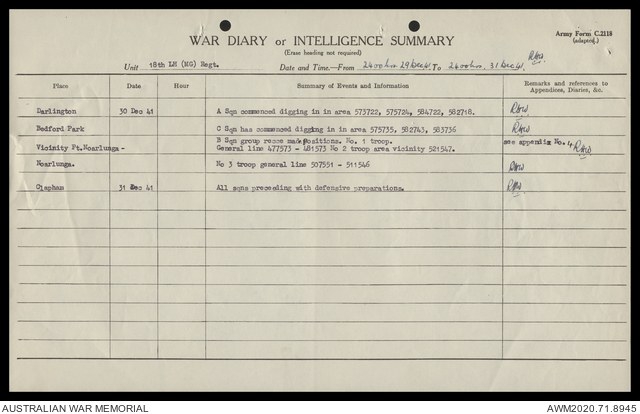 Army Form C.2118
(adapted.)
WAR DIARY or INTELLIGENCE SUMMARY
(Erase heading not required)
Unit 18th LH (MG) Regt. Date and Time.—From 2400hrs 29Dec41 To 2400hrs 31Dec41.
Place Date Hour Summary of Events and Information Remarks and references to Appendices, Diaries, &c.
Darlington 30 Dec 41 A Sqn commenced digging in in area 573722, 575724, 584722, 582718.
Bedford Park C Sqn has commenced digging in in area 575735, 582743, 583736
B Sqn group recce made positions. No. 1 troop. see appendix No. 4
Vicinity Pt.Noarlunga- General line 477573 - 481573 No 2 troop area vicinity 521547.
Noarlunga. No 3 troop general line 507551 - 511546
Clapham 31 Dec 41 All sqns proceeding with defensive preparations.
AUSTRALIAN WAR MEMORIAL AWM2020.71.8945